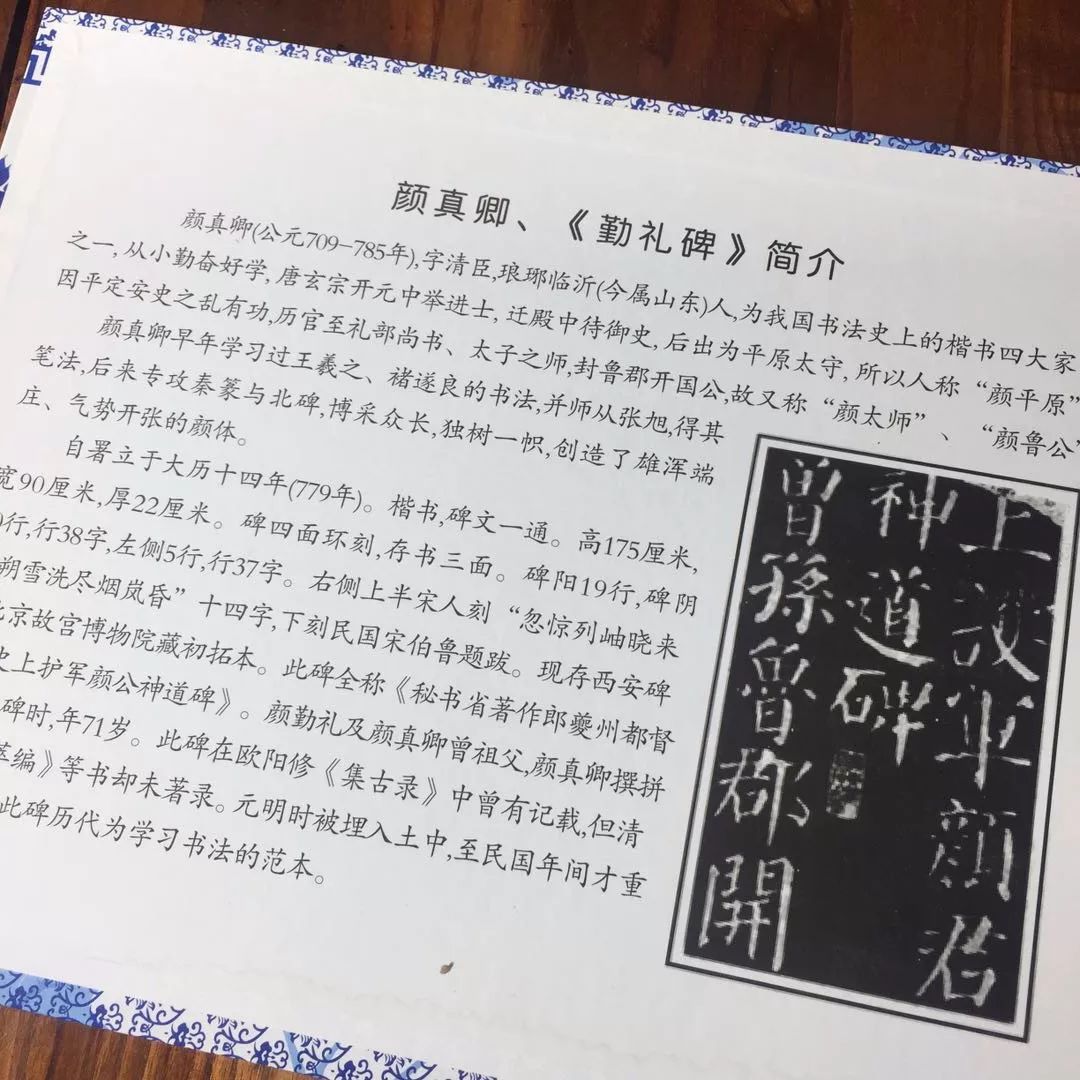 颜真卿、《勤礼碑》简介
颜真卿(公元709-785年),字清臣,琅琊临沂(今属山东)人,为我国书法史上的楷书四大家
之一,从小勤奋好学,唐玄宗开元中举进士,迁殿中待御史,后出为平原太守,所以人称“颜平原”
因平定安史之乱有功,历官至礼部尚书、太子之师,封鲁郡开国公,故又称“颜太师”、“颜鲁公”
颜真卿早年学习过王羲之、褚遂良的书法,并师从张旭,得其
笔法,后来专攻秦篆与北碑,博采众长,独树一帜,创造了雄浑端
庄、气势开张的颜体。
自署立于大历十四年(779年)。楷书,碑文一通。高175厘米,
宽90厘米,厚22厘米。碑四面环刻,存书三面。碑阳19行,碑阴
行,行38字,左侧5行,行37字。右侧上半宋人刻“忽惊列岫晓来
朔雪洗尽烟岚昏”十四字,下刻民国宋伯鲁题跋。现存西安碑
北京故宫博物院藏初拓本。此碑全称《秘书省著作郎夔州都督
史上护军颜公神道碑》。颜勤礼及颜真卿曾祖父,颜真卿撰拼
碑时,年71岁。此碑在欧阳修《集古录》中曾有记载,但清
萃编》等书却未著录。元明时被埋入土中,至民国年间才重
此碑历代为学习书法的范本。
上護軍顏君
神道碑
曾孫魯郡開